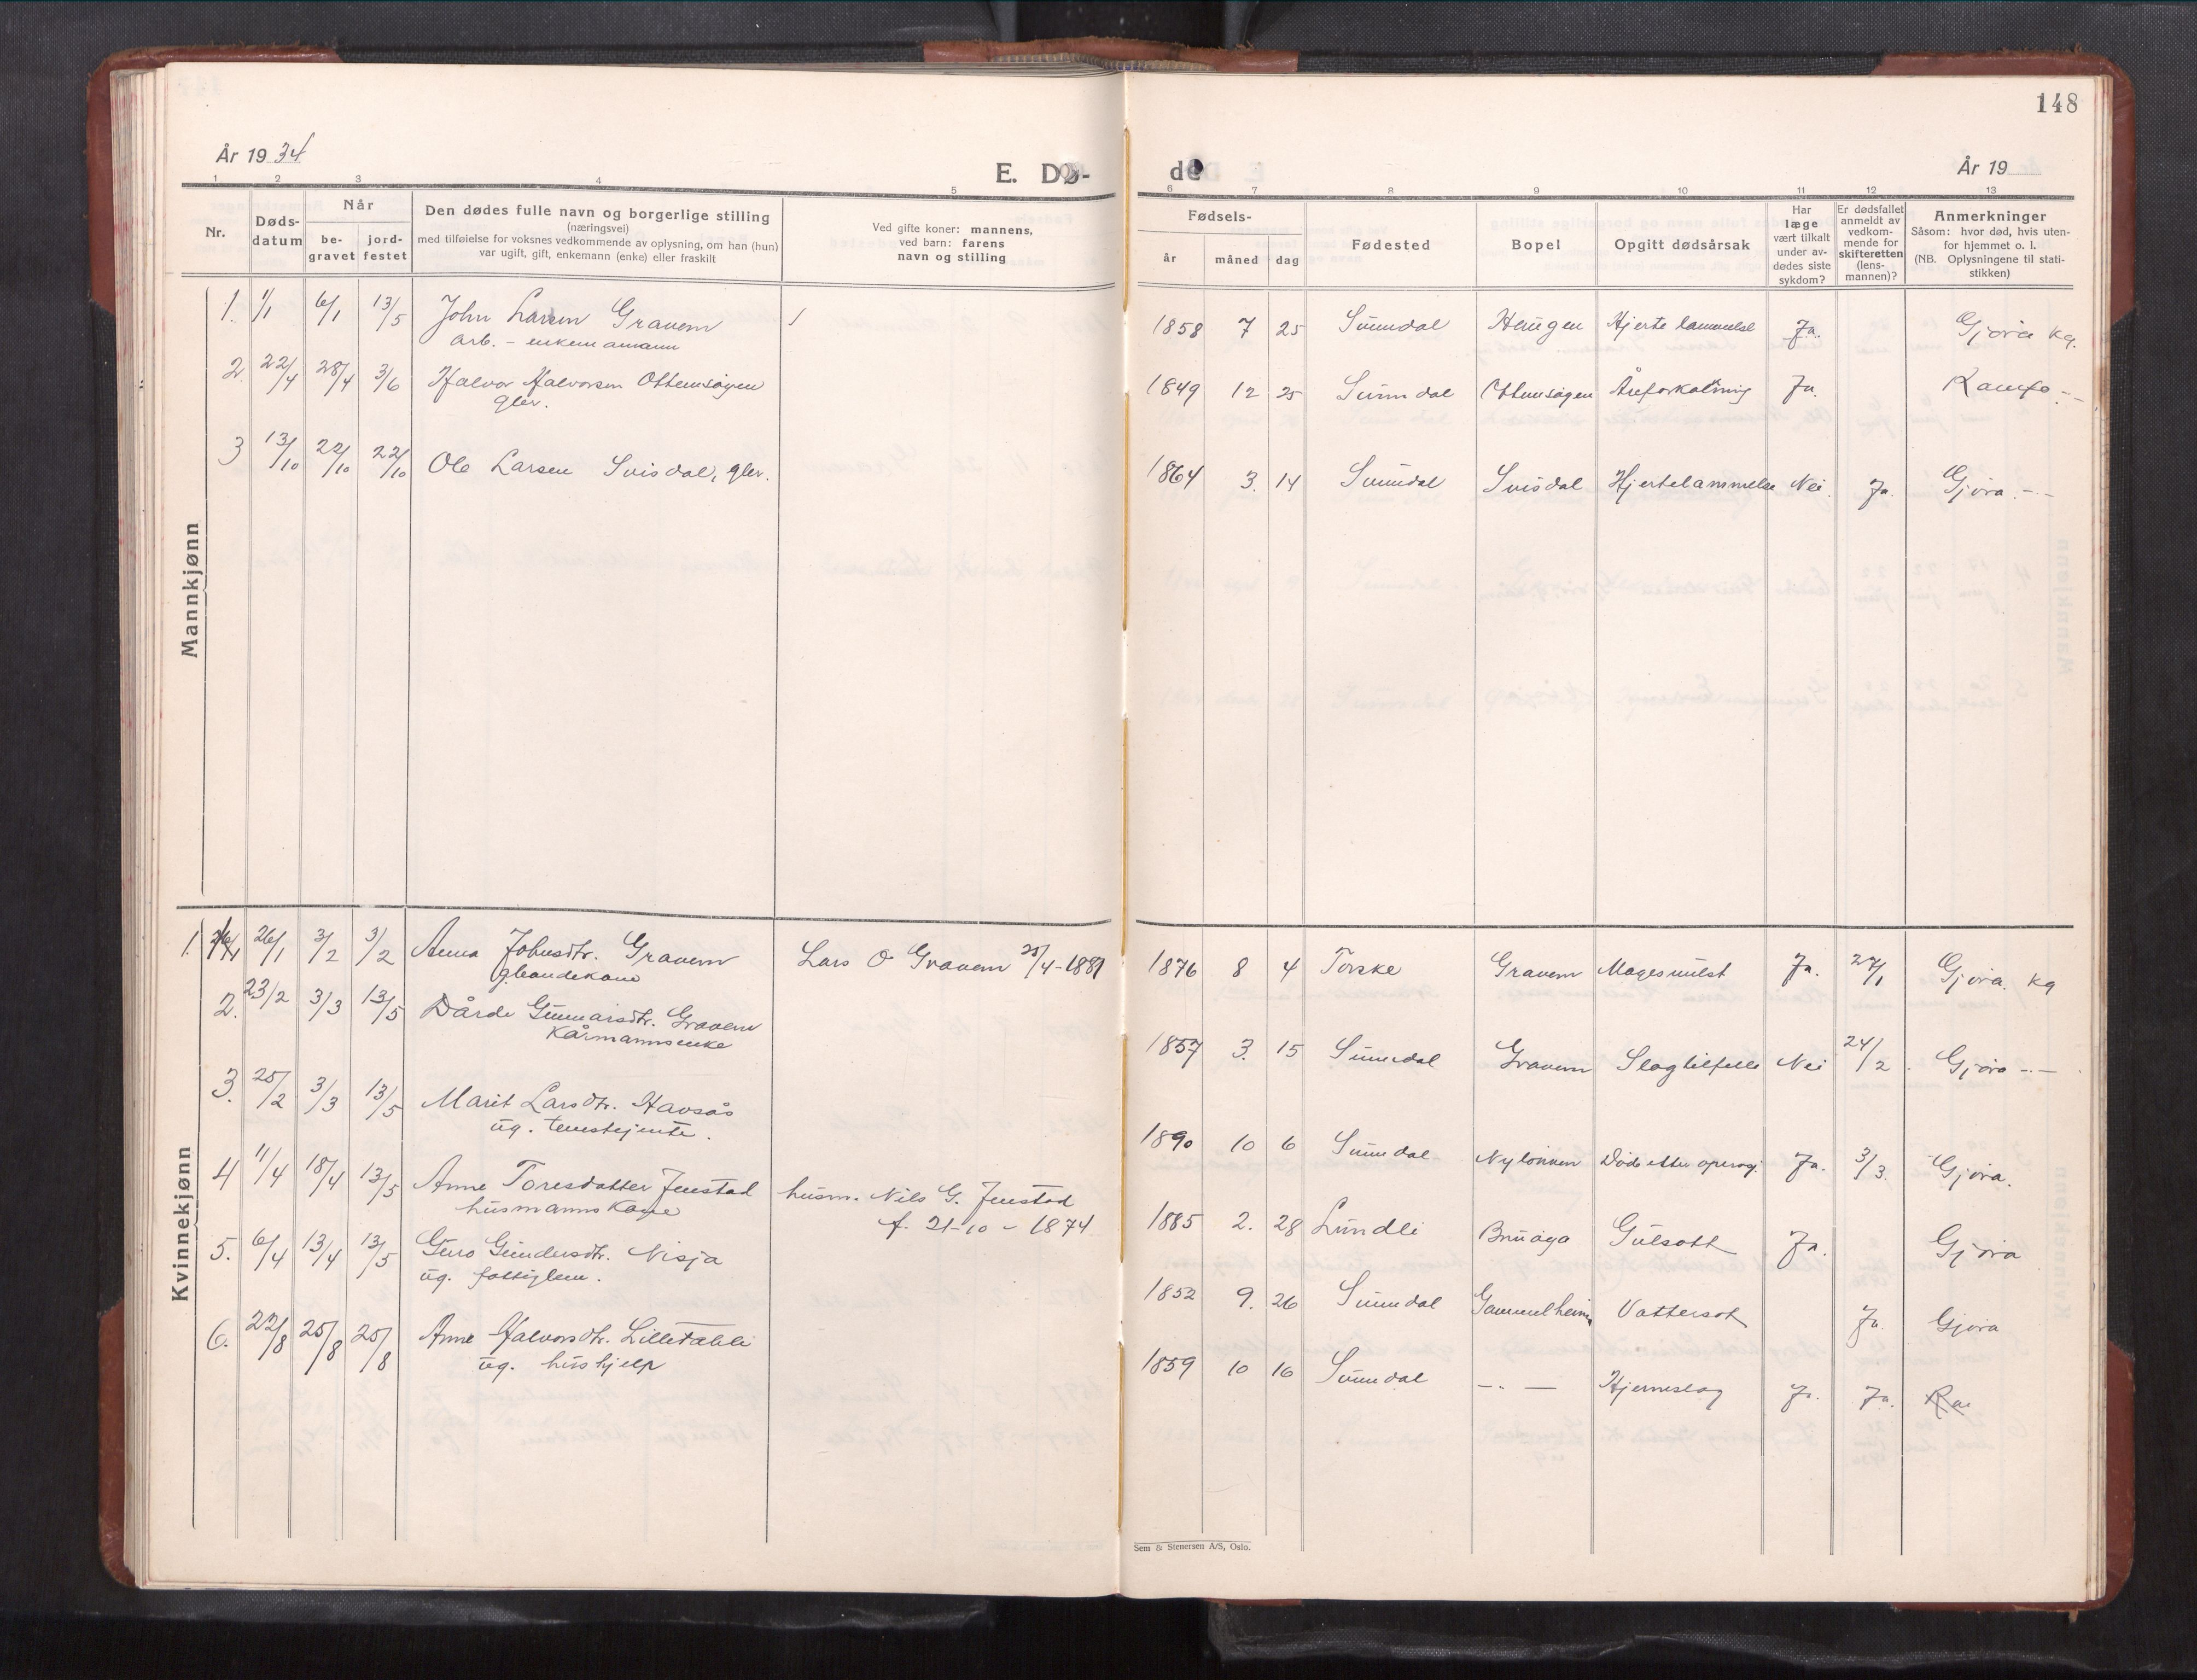 148
År 1934
E. Dø-
de
År 19
1 2 3 4 5 6 7 8 9 10 11 12 13
Nr.
Døds-
datum
Når
be-
gravet
jord-
festet
Den dødes fulle navn og borgerlige stilling
(næringsvei)
med tilføielse for voksnes vedkommende av oplysning, om han (hun)
var ugift, gift, enkemann (enke) eller fraskilt
Ved gifte koner: mannens,
ved barn: farens
navn og stilling
Fødsels-
år måned dag
Fødested
Bopel
Opgitt dødsårsak
Har
læge
vært tilkalt
under av-
dødes siste
sykdom?
Er dødsfallet
anmeldt av
vedkom-
mende for
skifteretten
(lens-
mannen)?
Anmerkninger
Såsom: hvor død, hvis uten-
for hjemmet o. l.
(NB. Oplysningene til stati-
stikken)
Mannkjønn
1. 1/1 6/1 13/5 John Larsen Gravem 1858 7 25 Sunndal Haugen Hjertelammelse Ja. Gjøra kg.
arb. - enkemann
2. 22/4 28/4 3/6 Halvor Halvorsen Ottemsøgen 1849 12 25 Sunndal Ottemsøgen Åreforkalkning Ja.
gbr.
3 13/10 22/10 22/10 Ole Larsen Svisdal, gbr. 1864 3. 14 Sunndal Svisdal Hjertelammelse Nei. Ja. Gjøra -"-
Kvinnekjønn
1. 26/1 3/2 3/2 Anna Johnsdtr. Gravem Lars O Gravem 25/4-1881 1876 8 4 Torske Gravem Ja. 27/1 Gjøra. kg
gbrukekone
2. 23/2 3/3 13/5 Dårde Gunnarsdtr. Gravem 1857 3. 15 Sunndal Gravem Slagtilfelle Nei 24/2. Gjøra -"-
Kårmannsenke
3. 25/2 3/3 13/5 Marit Larsdtr. Havsås 1890 10 6 Sunndal Nyløkken Død etter operasj. Ja. 3/3. Gjøra.
ug. tenestjente.
4 11/4 18/4 13/5 Anne Toresdatter Jenstad husm. Nils G. Jenstad 1885 2. 28 Lundli Bruøya Gulsott Ja. Gjøra
husmannskone f. 21-10-1874
5. 6/4 13/4 13/5 Guro Gundersdtr. Nisja 1852 9. 26 Sunndal Gammelheimen Vattersot Ja. Gjøra
ug. fattiglem.
6. 22/8 25/8 25/8 Anne Halvorsdtr. Lilletahli 1859 10 16 Sunndal -"- Hjerneslag Ja. Ja.
ug. hushjelp
Sem & Stenersen A/S, Oslo.